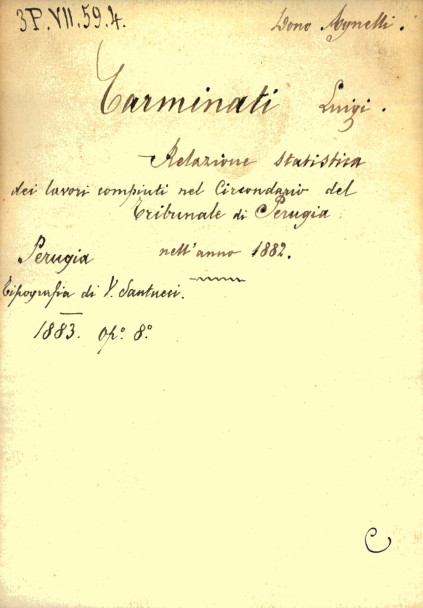 3P.VII.59.4.
Dono Agnelli.
Carminati Luigi.
Relazione statistica
dei lavori compiuti nel Circondario del
Tribunale di Perugia
nell'anno 1882.
Perugia
Tipografia di V. Santucci.
1883. Op.° 8.°
C